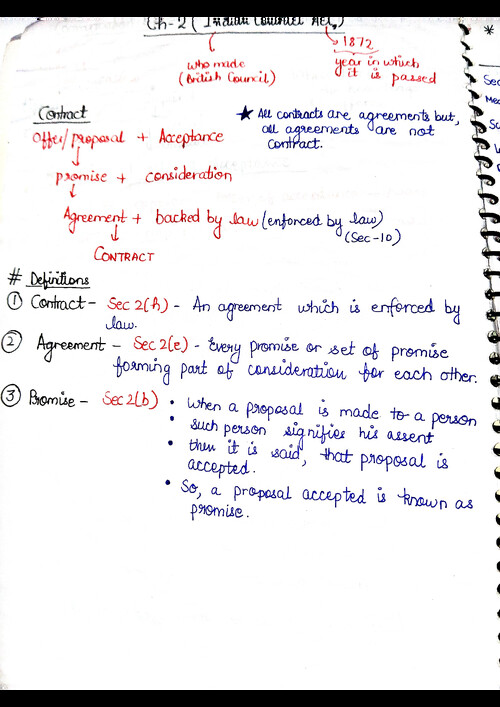 Ch-2 (Indian Contract Act,)
1872
who made
(British Council)
year in which
it is passed
Contract
★ All contracts are agreements but,
all agreements are not
contract.
Offer/proposal + Acceptance
promise + consideration
Agreement + backed by law (enforced by law)
(Sec-10)
CONTRACT
# Definitions
① Contract - Sec 2(h) - An agreement which is enforced by
law.
② Agreement - Sec 2(e) - Every promise or set of promise
forming part of consideration for each other.
③ Promise - Sec 2(b) • When a proposal is made to a person
• such person signifies his assent
• then it is said, that proposal is
accepted.
• So, a proposal accepted is known as
promise.
*
Sec